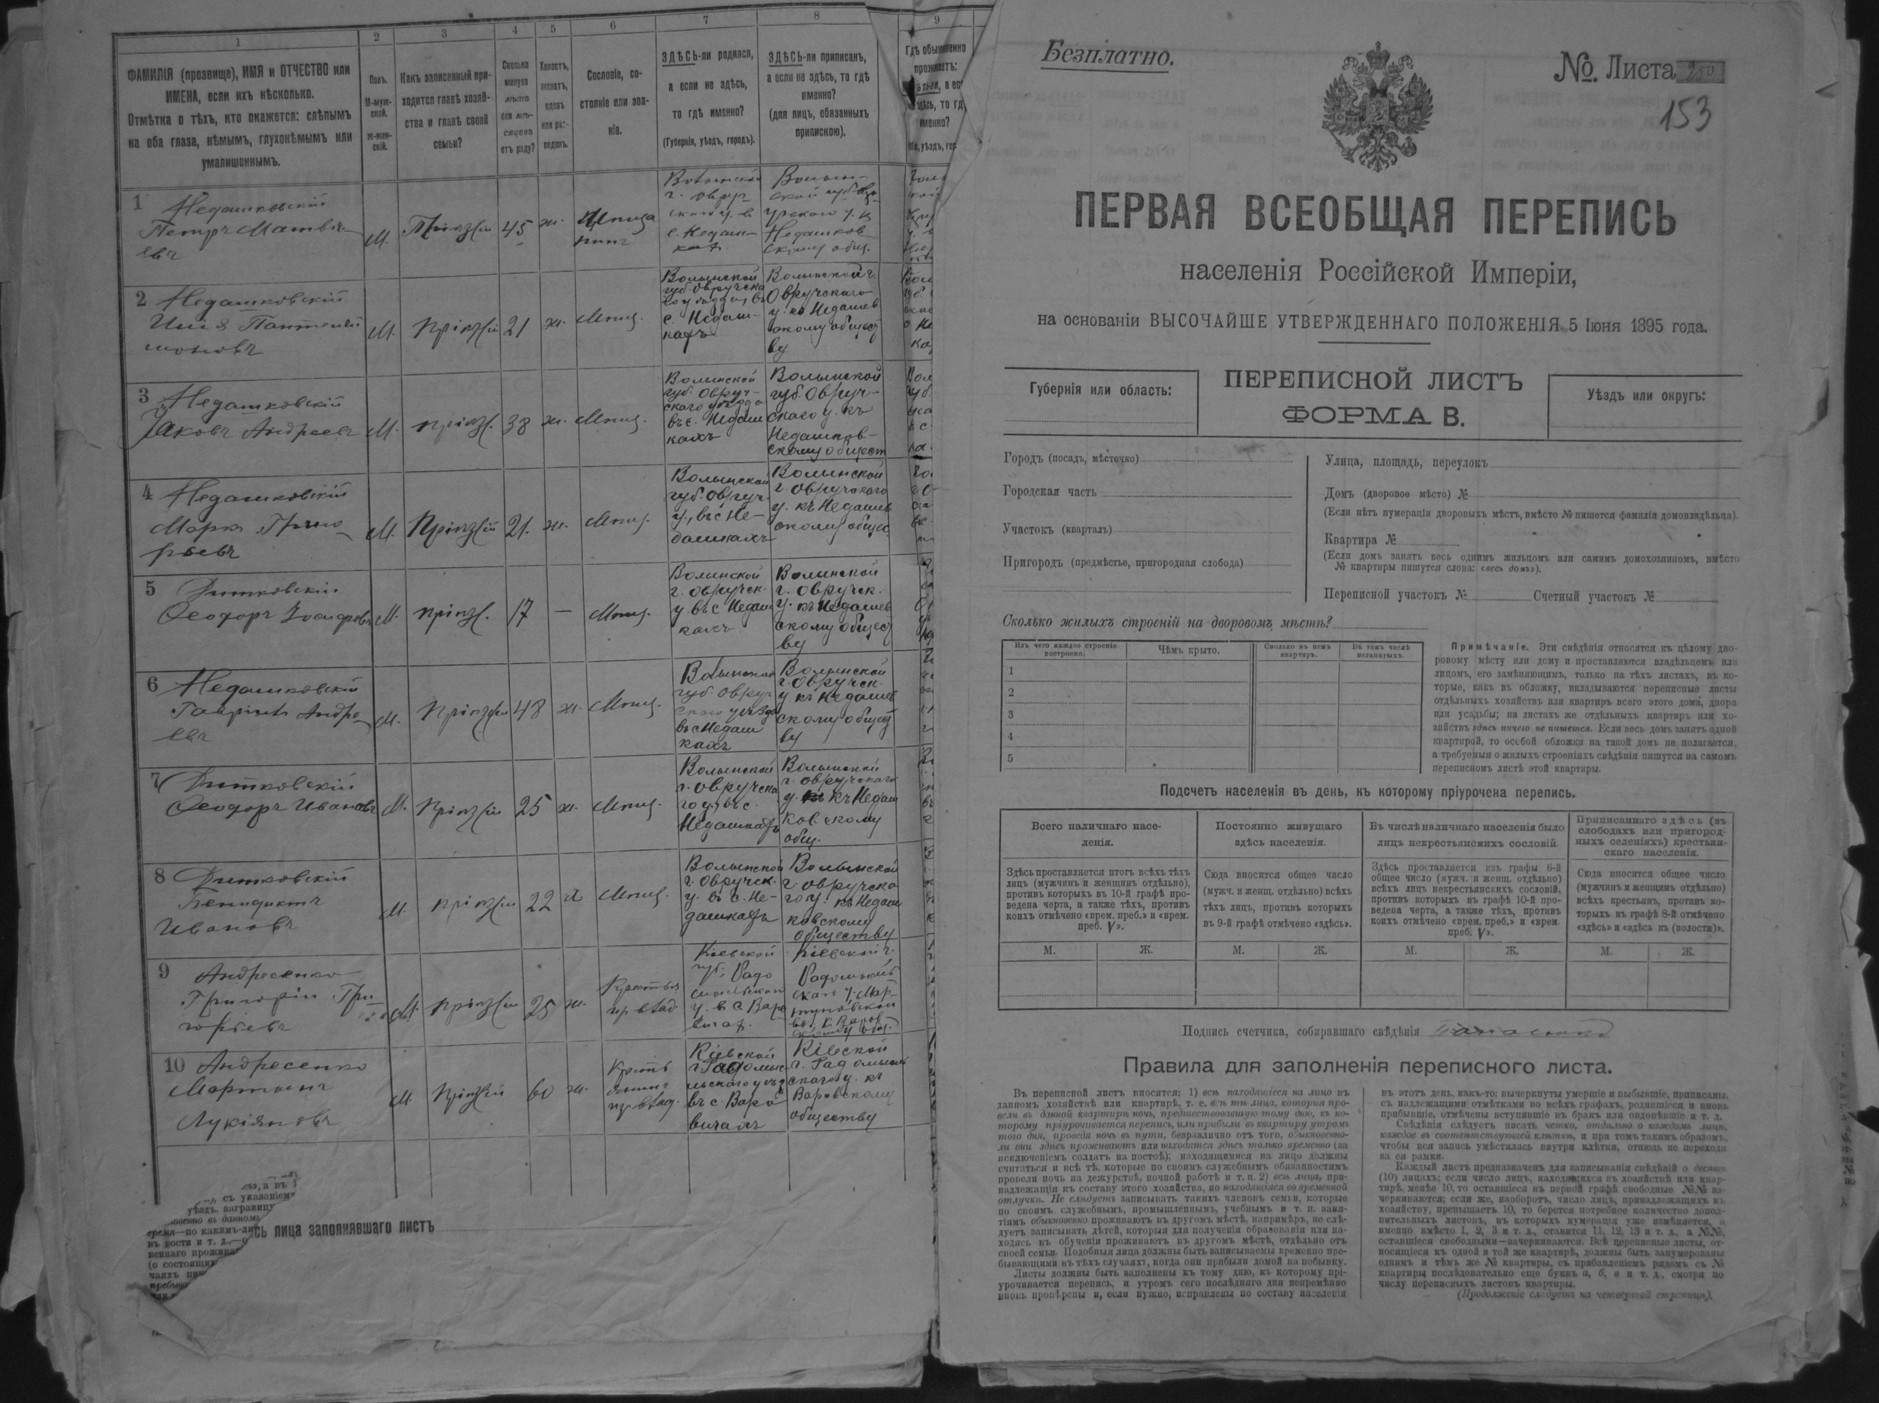 1 2 3 4 5 6 7 8 9
ФАМИЛІЯ (прозвище), ИМЯ и ОТЧЕСТВО или
ИМЕНА, если ихъ нѣсколько.
Отмѣтка о тѣхъ, кто окажется: слѣпымъ
на оба глаза, нѣмымъ, глухонѣмымъ или
умалишоннымъ.
Полъ.
М-муж-
ской.
Ж-жен-
скій.
Какъ записанный при-
ходится главѣ хозяй-
ства и главѣ своей
семьи?
Сколько
минуло
лѣтъ
или мѣ-
сяцевъ
отъ роду?
Холостъ,
женатъ,
вдовъ
или раз-
веденъ.
Сословіе, со-
стояніе или зва-
ніе.
ЗДѢСЬ-ли родился,
а если не здѣсь,
то гдѣ именно?
(Губернія, уѣздъ, городъ).
ЗДѢСЬ-ли приписанъ,
а если не здѣсь, то гдѣ
именно?
(для лицъ, обязанныхъ
припискою).
Гдѣ обыкновенно
проживаетъ:
именно?
1 Недашковскій
Петръ Матвѣ-
евъ
М. 45 ж.
2 Недашковскій
М. 21 ж. Мѣщ.
Волынской
с. Недаш-
кахъ
Волынской г.
Овручскаго
у. къ Недашев
скому общест
ву
3 Недашковскій
Яковъ Андреевъ
М. 38 ж. Мѣщ.
Волынской
губ. Овруч-
скаго уѣзда
въ с. Недаш
кахъ
Волынской
губ. Овруч-
скаго у. къ
Недашков-
скому общест
4 Недашковскій
Марко Григо
рьевъ
М. 21. ж. Мѣщ.
Волынской
губ. Овруч.
у., въ с Не-
дашкахъ
Волынской
г Овручскаго
у. къ Недашев
скому общес
5 Дитковскій
Ѳеодоръ
М. 17 — Мѣщ.
Волынской
г. Овручск.
у въ с Недаш
кахъ
Волынской
г. Овручск.
у. къ Недашев
скому общест
ву
6 Недашковскій
Гаврiилъ Андре
евъ
М. 48 ж. Мѣщ.
Волынской
губ. Овруч
скаго уѣзда
въ с Недаш
кахъ
Волынской
г Овручск-
у къ Недашев
скому общест
ву
7 Дитковскій
Ѳеодоръ Ивановъ
М. 25 ж. Мѣщ.
Волынской
г. Овручска
го у. въ с.
Недашкахъ
Волынской
г. Овручскаго
у. къ Недаш
ковскому
общ.
8 Дитковскій
Бенедиктъ
Ивановъ
М. 22 х Мѣщ.
Волынской
г. Овручск.
у. въ с. Не-
дашкахъ
Волынской
г Овручска
го у. къ Недаш
ковскому
обществу
9 Андреенко
Григорій Гри
горьевъ
М. 25 ж.
Кіевской
губ. Радо
Кіевской г.
10 Андреенко
Мартынъ
Лукіяновъ
М. 60 ж.
Кіевской
г. Радомы-
льскаго уѣзд
въ с Варо
вичахъ
Кіевской
г. Радомыль
скаго у. къ
Варовскому
обществу
съ указаніемъ
уѣзд. заграницу
ись лица заполнявшаго листъ
Безплатно.
№ Листа
153
ПЕРВАЯ ВСЕОБЩАЯ ПЕРЕПИСЬ
населенія Россійской Имперіи,
на основаніи ВЫСОЧАЙШЕ УТВЕРЖДЕННАГО ПОЛОЖЕНІЯ 5 Іюня 1895 года.
Губернія или область:
ПЕРЕПИСНОЙ ЛИСТЪ
ФОРМА В.
Уѣздъ или округъ:
Городъ (посадъ, мѣстечко)
Городская часть
Участокъ (кварталъ)
Пригородъ (предмѣстье, пригородная слобода)
Улица, площадь, переулокъ
Домъ (дворовое мѣсто) №
(Если нѣтъ нумераціи дворовыхъ мѣстъ, вмѣсто № пишется фамилія домовладѣльца).
Квартира №
(Если домъ занятъ весь однимъ жильцомъ или самимъ домохозяиномъ, вмѣсто
№ квартиры пишутся слова: «весь домъ»).
Переписной участокъ № Счетный участокъ №
Сколько жилыхъ строеній на дворовомъ мѣстѣ?
Изъ чего каждое строеніе
построено.
Чѣмъ крыто.
Сколько въ немъ
квартиръ.
Въ томъ числѣ
незанятыхъ.
1
2
3
4
5
Примѣчаніе. Эти свѣдѣнія относятся къ цѣлому дво-
ровому мѣсту или дому и проставляются владѣльцемъ или
лицомъ, его замѣняющимъ, только на тѣхъ листахъ, въ ко-
торые, какъ въ обложку, вкладываются переписные листы
отдѣльныхъ хозяйствъ или квартиръ всего этого дома, двора
или усадьбы; на листахъ же отдѣльныхъ квартиръ или хо-
зяйствъ здѣсь ничего не пишется. Если весь домъ занятъ одной
квартирой, то особой обложки на такой домъ не полагается,
а требуемыя о жилыхъ строеніяхъ свѣдѣнія пишутся на самомъ
переписномъ листѣ этой квартиры.
Подсчетъ населенія въ день, къ которому пріурочена перепись.
Всего наличнаго насе-
ленія.
Постоянно живущаго
здѣсь населенія.
Въ числѣ наличнаго населенія было
лицъ некрестьянскихъ сословій.
Приписаннаго здѣсь (въ
слободахъ или пригород-
ныхъ селеніяхъ) крестьян-
скаго населенія.
Здѣсь проставляется итогъ всѣхъ тѣхъ
лицъ (мужчинъ и женщинъ отдѣльно),
противъ которыхъ въ 10-й графѣ про-
ведена черта, а также тѣхъ, противъ
коихъ отмѣчено «врем. преб.» и «врем.
преб. V».
Сюда вносится общее число
(мужч. и женщ. отдѣльно) всѣхъ
тѣхъ лицъ, противъ которыхъ
въ 9-й графѣ отмѣчено «здѣсь».
Здѣсь проставляется изъ графы 6-й
общее число (мужч. и женщ. отдѣльно)
всѣхъ лицъ некрестьянскихъ сословій,
противъ которыхъ въ графѣ 10-й про-
ведена черта, а также тѣхъ, противъ
коихъ отмѣчено «врем. преб.» и «врем.
преб. V».
Сюда вносится общее число
(мужчинъ и женщинъ отдѣльно)
всѣхъ крестьянъ, противъ ко-
торыхъ въ графѣ 8-й отмѣчено
«здѣсь» и «здѣсь къ (волости)».
М. Ж. М. Ж. М. Ж. М. Ж.
Подпись счетчика, собиравшаго свѣдѣнія
Правила для заполненія переписного листа.
Въ переписной листъ вносится: 1) всѣ находящіеся на лицо въ
данномъ хозяйствѣ или квартирѣ, т. е. всѣ тѣ лица, которыя про-
вели въ данной квартирѣ ночь, предшествовавшую тому дню, къ ко-
торому пріурочивается перепись, или прибыли въ квартиру утромъ
того дня, проведя ночь въ пути, безразлично отъ того, обыкновенно-
ли они здѣсь проживаютъ или находятся здѣсь только временно (за
исключеніемъ солдатъ на постоѣ); находящимися на лицо должны
считаться и всѣ тѣ, которые по своимъ служебнымъ обязанностямъ
провели ночь на дежурствѣ, ночной работѣ и т. п. 2) всѣ лица, при-
надлежащія къ составу этого хозяйства, но находящіяся во временной
отлучкѣ. Не слѣдуетъ записывать такихъ членовъ семьи, которые
по своимъ служебнымъ, промышленнымъ, учебнымъ и т. п. заня-
тіямъ обыкновенно проживаютъ въ другомъ мѣстѣ, напримѣръ, не слѣ-
дуетъ записывать дѣтей, которыя для полученія образованія или на-
ходясь въ обученіи проживаютъ въ другомъ мѣстѣ, отдѣльно отъ
своей семьи. Подобныя лица должны быть записываемы временно пре-
бывающими въ тѣхъ случаяхъ, когда они прибыли домой на побывку.
Листы должны быть заполнены къ тому дню, къ которому прі-
урочивается перепись, и утромъ сего послѣдняго дня непремѣнно
вновь провѣрены и, если нужно, исправлены по составу населенія
въ этотъ день, какъ-то: вычеркнуты умершіе и выбывшіе, приписаны,
съ надлежащими отмѣтками во всѣхъ графахъ, родившіеся и вновь
прибывшіе, отмѣчены вступившіе въ бракъ или овдовѣвшіе и т. д.
Свѣдѣнія слѣдуетъ писать четко, отдѣльно о каждомъ лицѣ,
каждое въ соотвѣтствующей клѣткѣ, и при томъ такимъ образомъ,
чтобы вся запись умѣстилась внутри клѣтки, отнюдь не переходя
за ея рамки.
Каждый листъ предназначенъ для записыванія свѣдѣній о десяти
(10) лицахъ; если число лицъ, находящихся въ хозяйствѣ или квар-
тирѣ, менѣе 10, то оставшіеся въ первой графѣ свободные №№ за-
черкиваются; если же, наоборотъ, число лицъ, принадлежащихъ къ
хозяйству, превышаетъ 10, то берется потребное количество допол-
нительныхъ листовъ, въ которыхъ нумерація уже измѣняется, а
именно вмѣсто 1, 2, 3 и т. д., ставится 11, 12, 13 и т. д., а №№,
оставшіеся свободными—зачеркиваются. Всѣ переписные листы, от-
носящіеся къ одной и той же квартирѣ, должны быть занумерованы
однимъ и тѣмъ же № квартиры, съ прибавленіемъ рядомъ съ №
квартиры послѣдовательно еще буквъ а, б, в и т. д., смотря по
числу переписныхъ листовъ квартиры.
(Продолженіе слѣдуетъ на четвертой страницѣ).